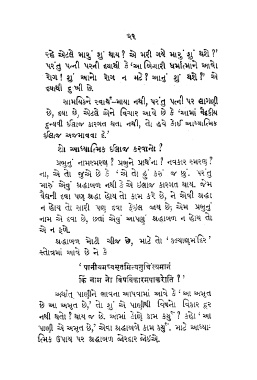 ૨૧
રહે એટલે મારૂં શું થાય? એ મરી ગયે મારૂં શું થશે?'
પરંતુ પત્ની પરની દયાથી કે 'આ બિચારી ધર્માત્માને આવો
રોગ! શું આનો રોગ ન મટે? આનું શું થશે?' એ
દયાથી દુઃખી છે.
સામયિકને સ્વાર્થ-માયા નથી, પરંતુ પત્ની પર લાગણી
છે, દયા છે, એટલે એને વિચાર આવે છે કે 'આમાં વૈદ્યકીય
દુન્યવી ઈલાજ કારગત થતા નથી, તો હવે કોઈ આધ્યાત્મિક
ઈલાજ અજમાવવા દે.'
શે આધ્યાત્મિક ઈલાજ કરવાનો?
પ્રભુનું નામસ્મરણ? પ્રભુને પ્રાર્થના? નવકાર સ્મરણ?
ના, એ તો જુએ છે કે 'એ તો હું કરૂં જ છું. પરંતુ
મારૂં એવું શ્રદ્ધાબળ નથી કે એ ઈલાજ કારગત થાય. જેમ
વૈદ્યની દવા પણ શ્રદ્ધા હોય તો કામ કરે છે, ને એવી શ્રદ્ધા
ન હોય તો સારી પણ દવા ફેઈલ જાય છે; એમ પ્રભુનું
નામ એ દવા છે, છતાં એવું આપણું શ્રદ્ધાબળ ન હોય તો
એ ન ફળે.
શ્રદ્ધાબળ મોટી ચીજ છે, માટે તો 'કલ્યાણમંદિર'
સ્તોત્રમાં આવે છે ને કે
'पानीयमप्यमृतमित्यनुचिंत्यमानं
किं नाम नो विषविकारमपाकरोति ?'
અર્થાત્ પાણીને ભાવના આપવામાં આવે કે 'આ અમૃત
છે આ અમૃત છે,' તો શું એ પાણીથી વિષનો વિકાર દૂર
નથી થતો? થાય જ છે. આમાં કોણે કામ કર્યું? કહો 'આ
પાણી એ અમૃત છે,' એવા શ્રદ્ધાબળે કામ કર્યું. માટે આધ્યા-
ત્મિક ઉપાય પર શ્રદ્ધાબળ જોરદાર જોઈએ.